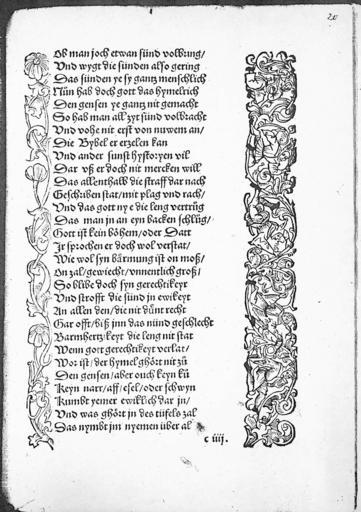 20
Ob man joch etwan sünd volbring/
Vnd wygt die sünden also gering
Das sünden ye sy gantz menschlich
Nůn hab doch gott das hymelrich
Den gensen ye gantz nit gemacht
So hab man all zyt sünd volbracht
Vnd vohe nit erst von nuwem an/
Die Bybel er erzelen kan
Vnd ander sunst hystoryen vil
Dar vß er doch nit mercken will
Das allenthalb die straff dar nach
Geschriben stat/mit plag vnd rach/
Vnd das gott ny e die leng vertrůg
Das man jn an eyn backen schlůg/
Gott ist kein böhem/oder Datt
Ir sprochen er doch wol verstat/
Wie wol syn bármung ist on moß/
On zal/gewiecht/vnentlich groß/
So blibt doch syn gerechtikeyt
Vnd strofft die sünd jn ewikeyt
An allen den/die nit důnt recht
Gar offt/biß jnn das nünd geschlecht
Barmhertzikeyt die leng nit stat
Wenn gott gerechtikeyt verlat/
Wor ist/der hymel ghört nit zů
Den gensen/aber ouch keyn ků
Keyn narr/aff/esel/oder schwyn
Kumbt yemer ewiklich dar jn/
Vnd was ghört jn des tüfels zal
Das nymbt jm nyemen über al
c iiij.